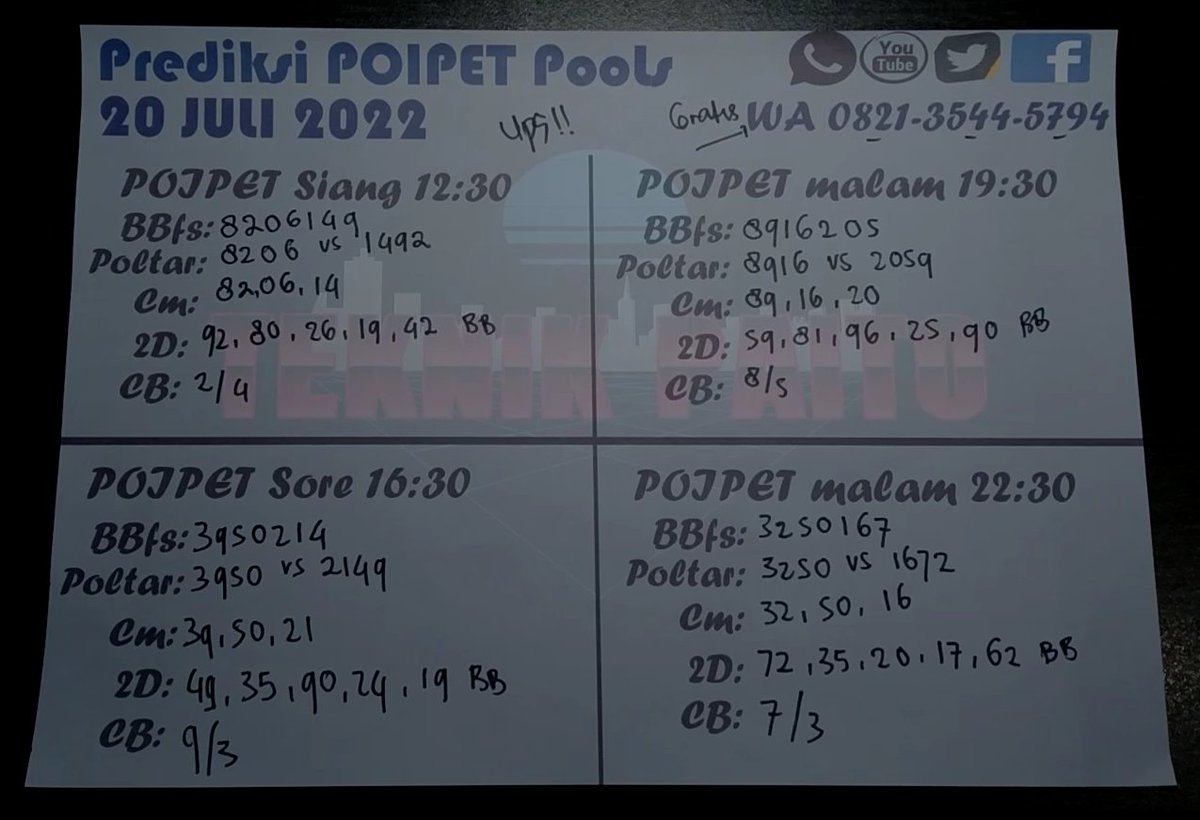 Prediksi POIPET Pools
20 JULI 2022
You
Tube
f
ups!!
Gratis
WA 0821-3544-5794
POIPET Siang 12:30
BBfs: 8206149
Poltar: 8206 vs 1492
Cm: 82,06,14
2D: 92,80,26,19,42 BB
CB: 2/4
POIPET malam 19:30
BBfs: 8916205
Poltar: 8916 vs 2059
Cm: 89,16,20
2D: 59,81,96,25,90 BB
CB: 8/5
TEKNIK PAITO
POIPET Sore 16:30
BBfs: 3950214
Poltar: 3950 vs 2149
Cm: 39,50,21
2D: 49,35,90,24,19 BB
CB: 9/3
POIPET malam 22:30
BBfs: 3250167
Poltar: 3250 vs 1672
Cm: 32,50,16
2D: 72,35,20,17,62 BB
CB: 7/3